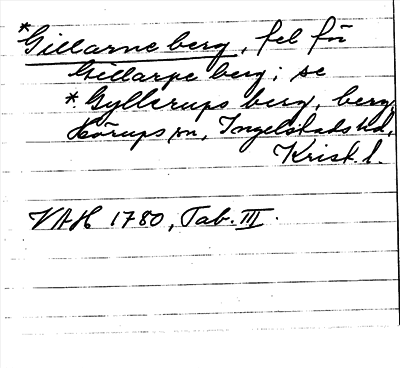 *Gillarne berg, fel för
Gillarpe berg; se
*Gyllerups berg, berg
Hörups sn, Ingelstads hd,
Krist. l.
VAH 1780, Tab. III.